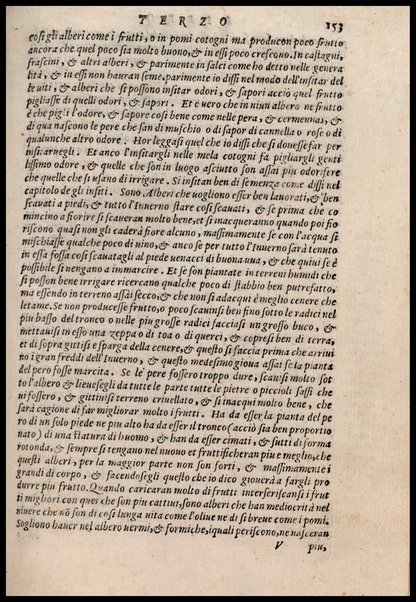 TERZO 153
cosi gli alberi come i frutti, o in pomi cotogni ma producon poco frutto
ancora che quel poco sia molto buono, & in essi poco crescono. In castagni,
frascini, & altri alberi, & parimente in salci come ho detto nelle genera
lità, & in essi non hauran seme. parimente io dissi nel modo dell'insitar del
le uiti, & alberi che si possono insitar odori, & sapori acciò quel frutto
pigliasse di quelli odori, & sapori. Et è uero che in niun albero ne frutto
è che pigli l'odore, & sapore cosi bene come nelle pera, & cermennas, &
di qua nascono le pere che san di muschio o di sapor di cannella o rose o di
qualunche altro odore. Hor leggasi quel che io dissi che si douesse far per
insitaruegli. Et anco l'insitargli nelle mela cotogni fa pigliargli genti
lissimo odore, & quelle che son in luogo asciutto son assai piu odorifere
che quelle che si usano di irrigare. Si insitan ben di semenza come dissi nel
capitolo de gli insiti. Sono Alberi che uogliono esser ben lauorati, & ben
scauati a piedi, & tutto l'Inuerno stare cosi scauati, & se prima che co
mincino a fiorire si scaueran molto bene, et si macqueranno quando poi fio
riscono quasi non gli caderà fiore alcuno, massimamente se con l'acqua si
mischiasse qualche poco di uino, & anco se per tutto l'Inuerno sarà tenuto
in essa fossa cosi scauatagli al piede uenacci di buona uua, & che quiui se è
possibile si uengano a immarcire. Et se son piantate in terreni humidi che
si posson bene irrigare ricercano qualche poco di stabbio ben putrefatto,
ma essendo in terreno assai secco, & che non si adacqui è meglio cenere che
letame. Se non producesse frutto, o poco scauinsi ben fino sotto le radici nel
piu basso del tronco o nelle piu grosse radici facciasi un grosso buco, &
mettauisi in esso una zeppa o di toa o di querci, & copresi ben di terra,
et di sopra gittisi e sparga della cenere, & questo si faccia prima che arriui
no i gran freddi dell'Inuerno, & questo medesimo gioua assai se la pianta
del pero fosse marcita. Se le pere fossero troppo dure, scauisi molto sot
to l'albero & lieuesegli da tutte le parte tutte le pietre o piccioli sassi che
ui fossero, & gittiuisi terreno criuellato, & si inacqui molto bene, che
sarà cagione di far migliorar molto i frutti. Ha da esser la pianta del pe
ro di un solo piede ne piu alto ha da esser il tronco (acciò sia ben proportio
nato) di una statura di huomo, & han da esser cimati, & sutti di forma
rotonda, & sempre si tengano nel nuouo et fruttificheran piu e meglio, che
questi alberi, per la maggior parte non son forti, & massimamente i
grandi di corpo, & facendosegli questo che io dico giouerà a fargli pro
durre piu frutto. Quando caricaran molto di frutti interserischansi i frut
ti migliori con quei che son piu cattiui, sono alberi che han mediocrità nel
uiuere che nõ son di cosi lunga uita come l'oliue ne di si breue come i pomi.
Sogliono hauer nel albero uermi, & formiche, iquali periscono, ne nasceran
V piu,